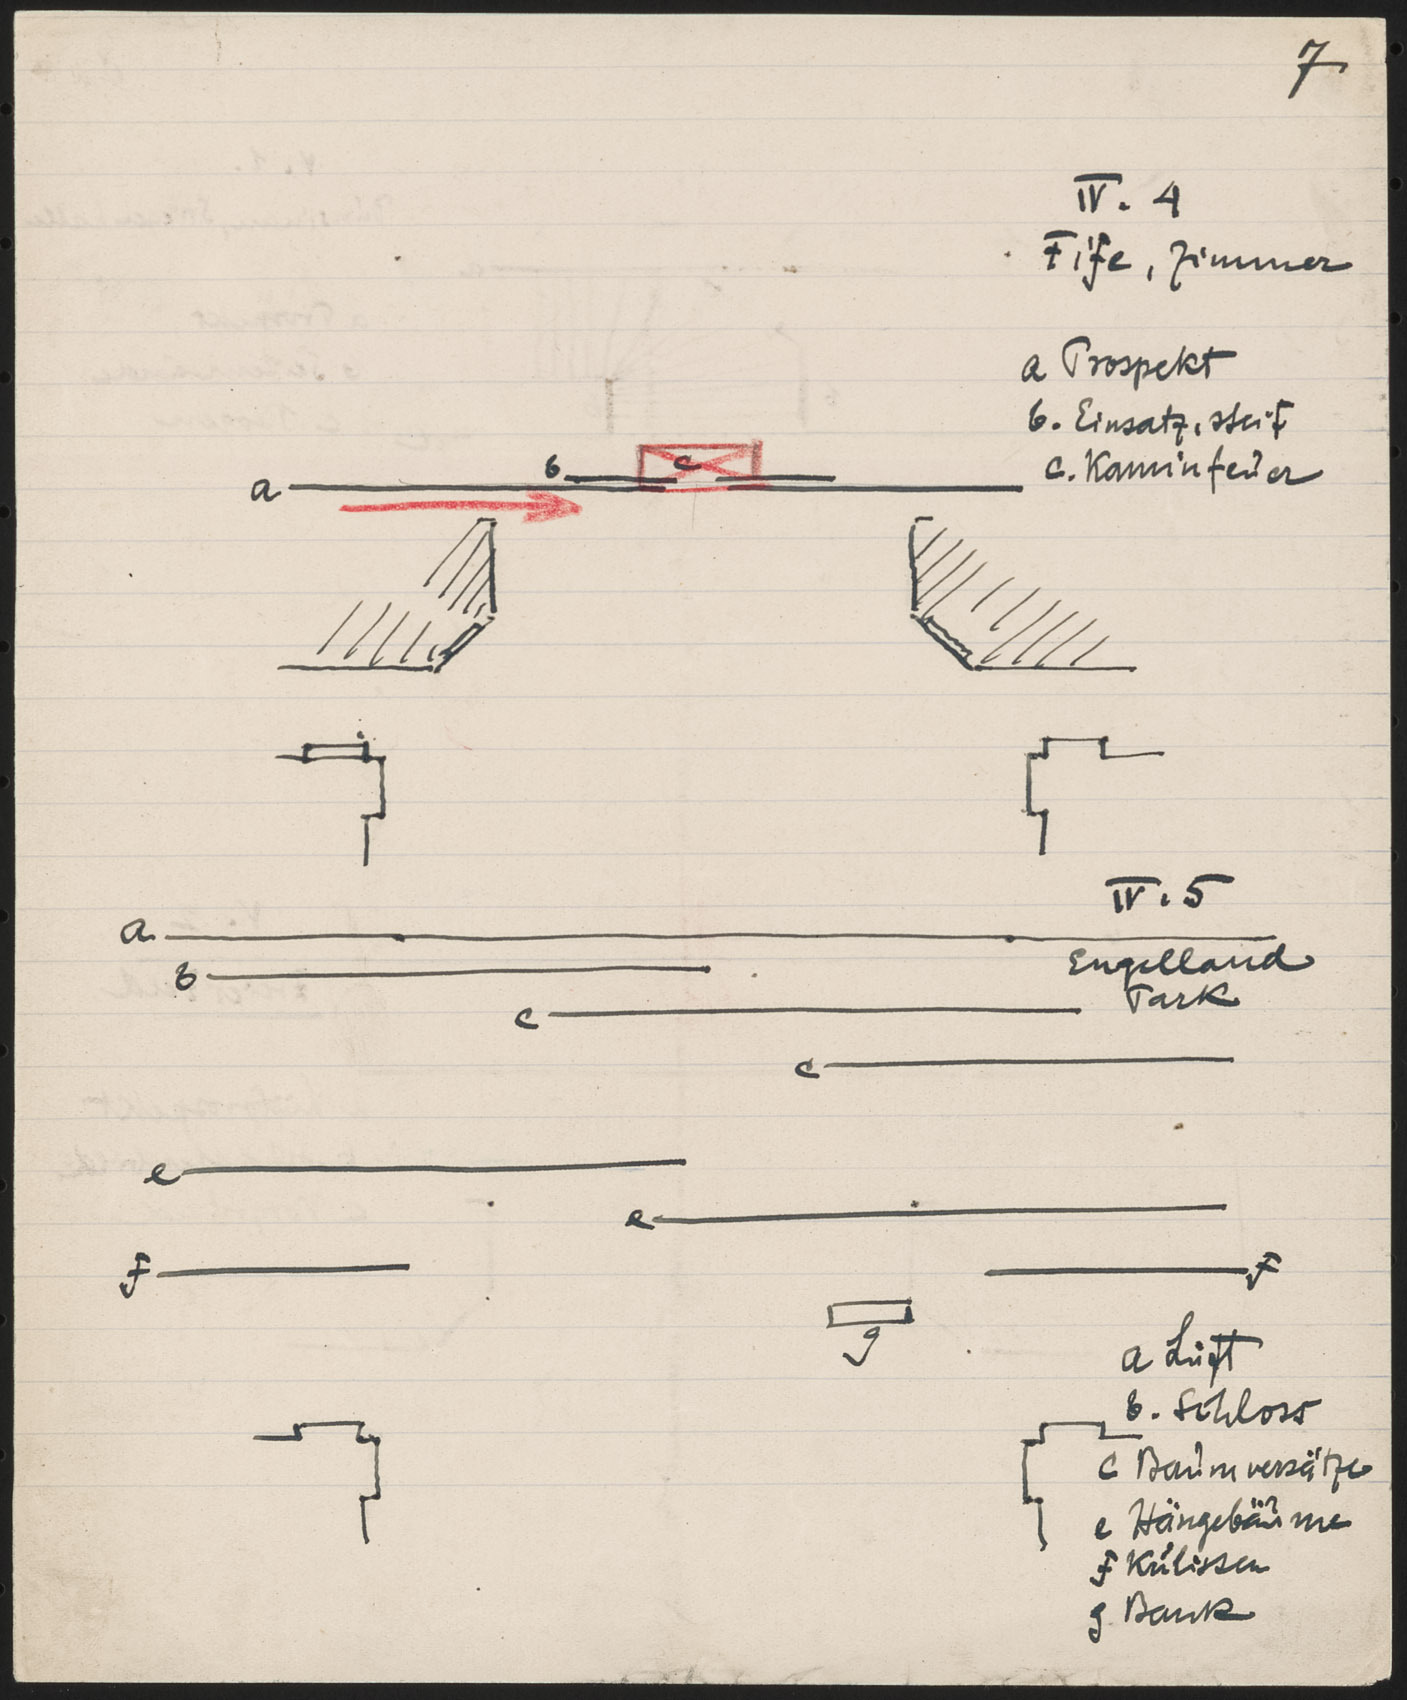 7
IV. 4
Fife, Zimmer
a Prospekt
b. Einsatz, steif
c. Kaminfeuer
b
c
a
IV. 5
a
Engelland
b
Park
c
c
e
e
f
f
g
a Luft
b. Schloss
c Baumversätze
e Hängebäume
f Kulissen
g Bank